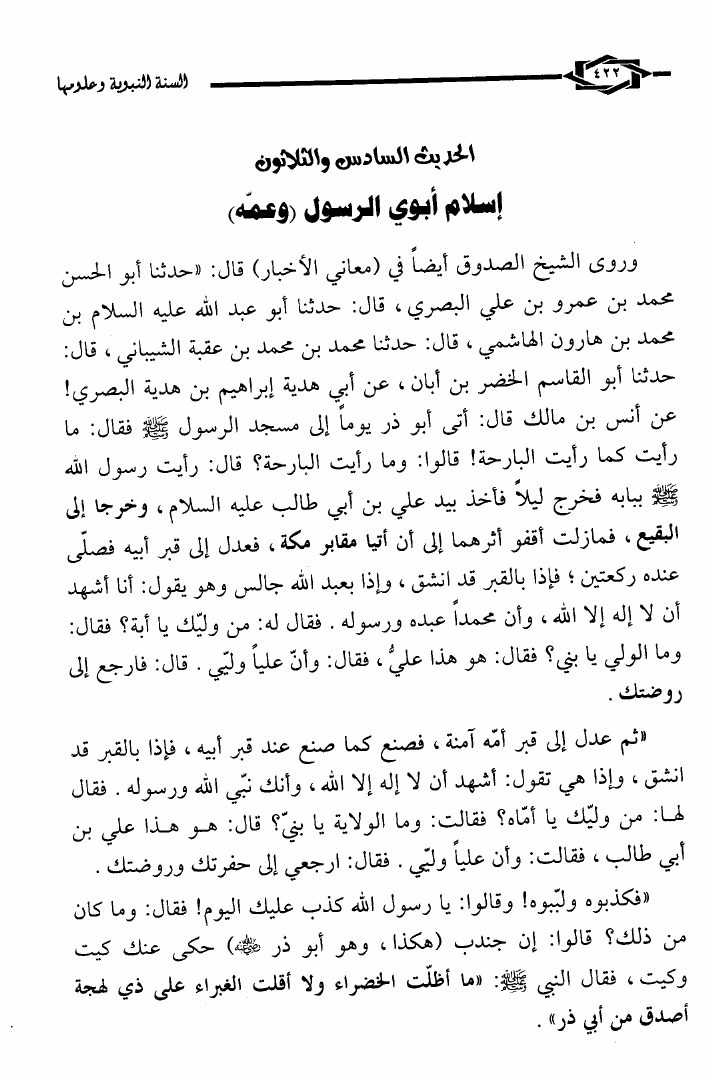 ٤٢٢
السنة النبوية وعلومها
الحديث السادس والثلاثون
إسلام أبوي الرسول (وعمّه)
وروى الشيخ الصدوق أيضاً في (معاني الأخبار) قال: «حدثنا أبو الحسن
محمد بن عمرو بن علي البصري، قال: حدثنا أبو عبد الله عليه السلام بن
محمد بن هارون الهاشمي، قال: حدثنا محمد بن محمد بن عقبة الشيباني، قال:
حدثنا أبو القاسم الخضر بن أبان، عن أبي هدية إبراهيم بن هدية البصري!
عن أنس بن مالك قال: أتى أبو ذر يوماً إلى مسجد الرسول ﷺ فقال: ما
رأيت كما رأيت البارحة! قالوا: وما رأيت البارحة؟ قال: رأيت رسول الله
ﷺ ببابه فخرج ليلاً فأخذ بيد علي بن أبي طالب عليه السلام، وخرجا إلى
البقيع، فمازلت أقفو أثرهما إلى أن أتيا مقابر مكة، فعدل إلى قبر أبيه فصلّى
عنده ركعتين؛ فإذا بالقبر قد انشق، وإذا بعبد الله جالس وهو يقول: أنا أشهد
أن لا إله إلا الله، وأن محمداً عبده ورسوله. فقال له: من وليّك يا أبة؟ فقال:
وما الولي يا بني؟ فقال: هو هذا عليٌّ، فقال: وأنّ علياً وليّي. قال: فارجع إلى
روضتك.
«ثم عدل إلى قبر أمّه آمنة، فصنع كما صنع عند قبر أبيه، فإذا بالقبر قد
انشق، وإذا هي تقول: أشهد أن لا إله إلا الله، وأنك نبّي الله ورسوله. فقال
لها: من وليّك يا أمّاه؟ فقالت: وما الولاية يا بنيّ؟ قال: هو هذا علي بن
أبي طالب، فقالت: وأن علياً وليّي. فقال: ارجعي إلى حفرتك وروضتك.
«فكذبوه ولبّبوه! وقالوا: يا رسول الله كذب عليك اليوم! فقال: وما كان
من ذلك؟ قالوا: إن جندب (هكذا، وهو أبو ذر رضي الله عنه) حكى عنك كيت
وكيت، فقال النبي ﷺ: «ما أظلّت الخضراء ولا أقلت الغبراء على ذي لهجة
أصدق من أبي ذر».